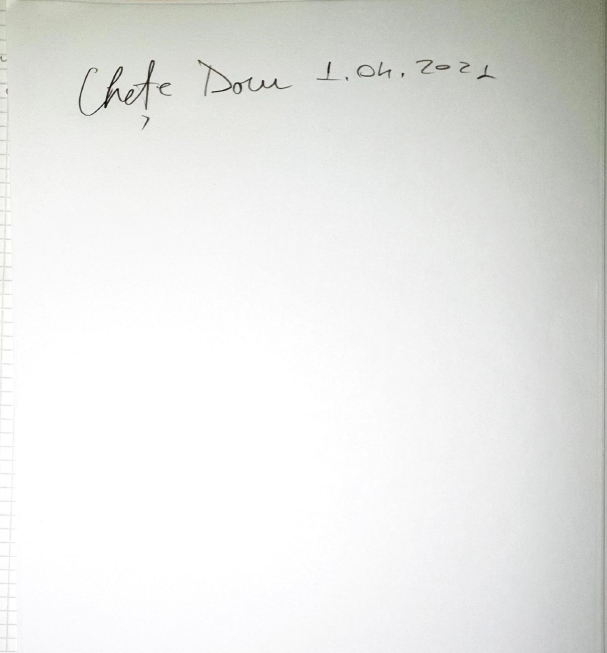 Chețe Dom 1.04.2021